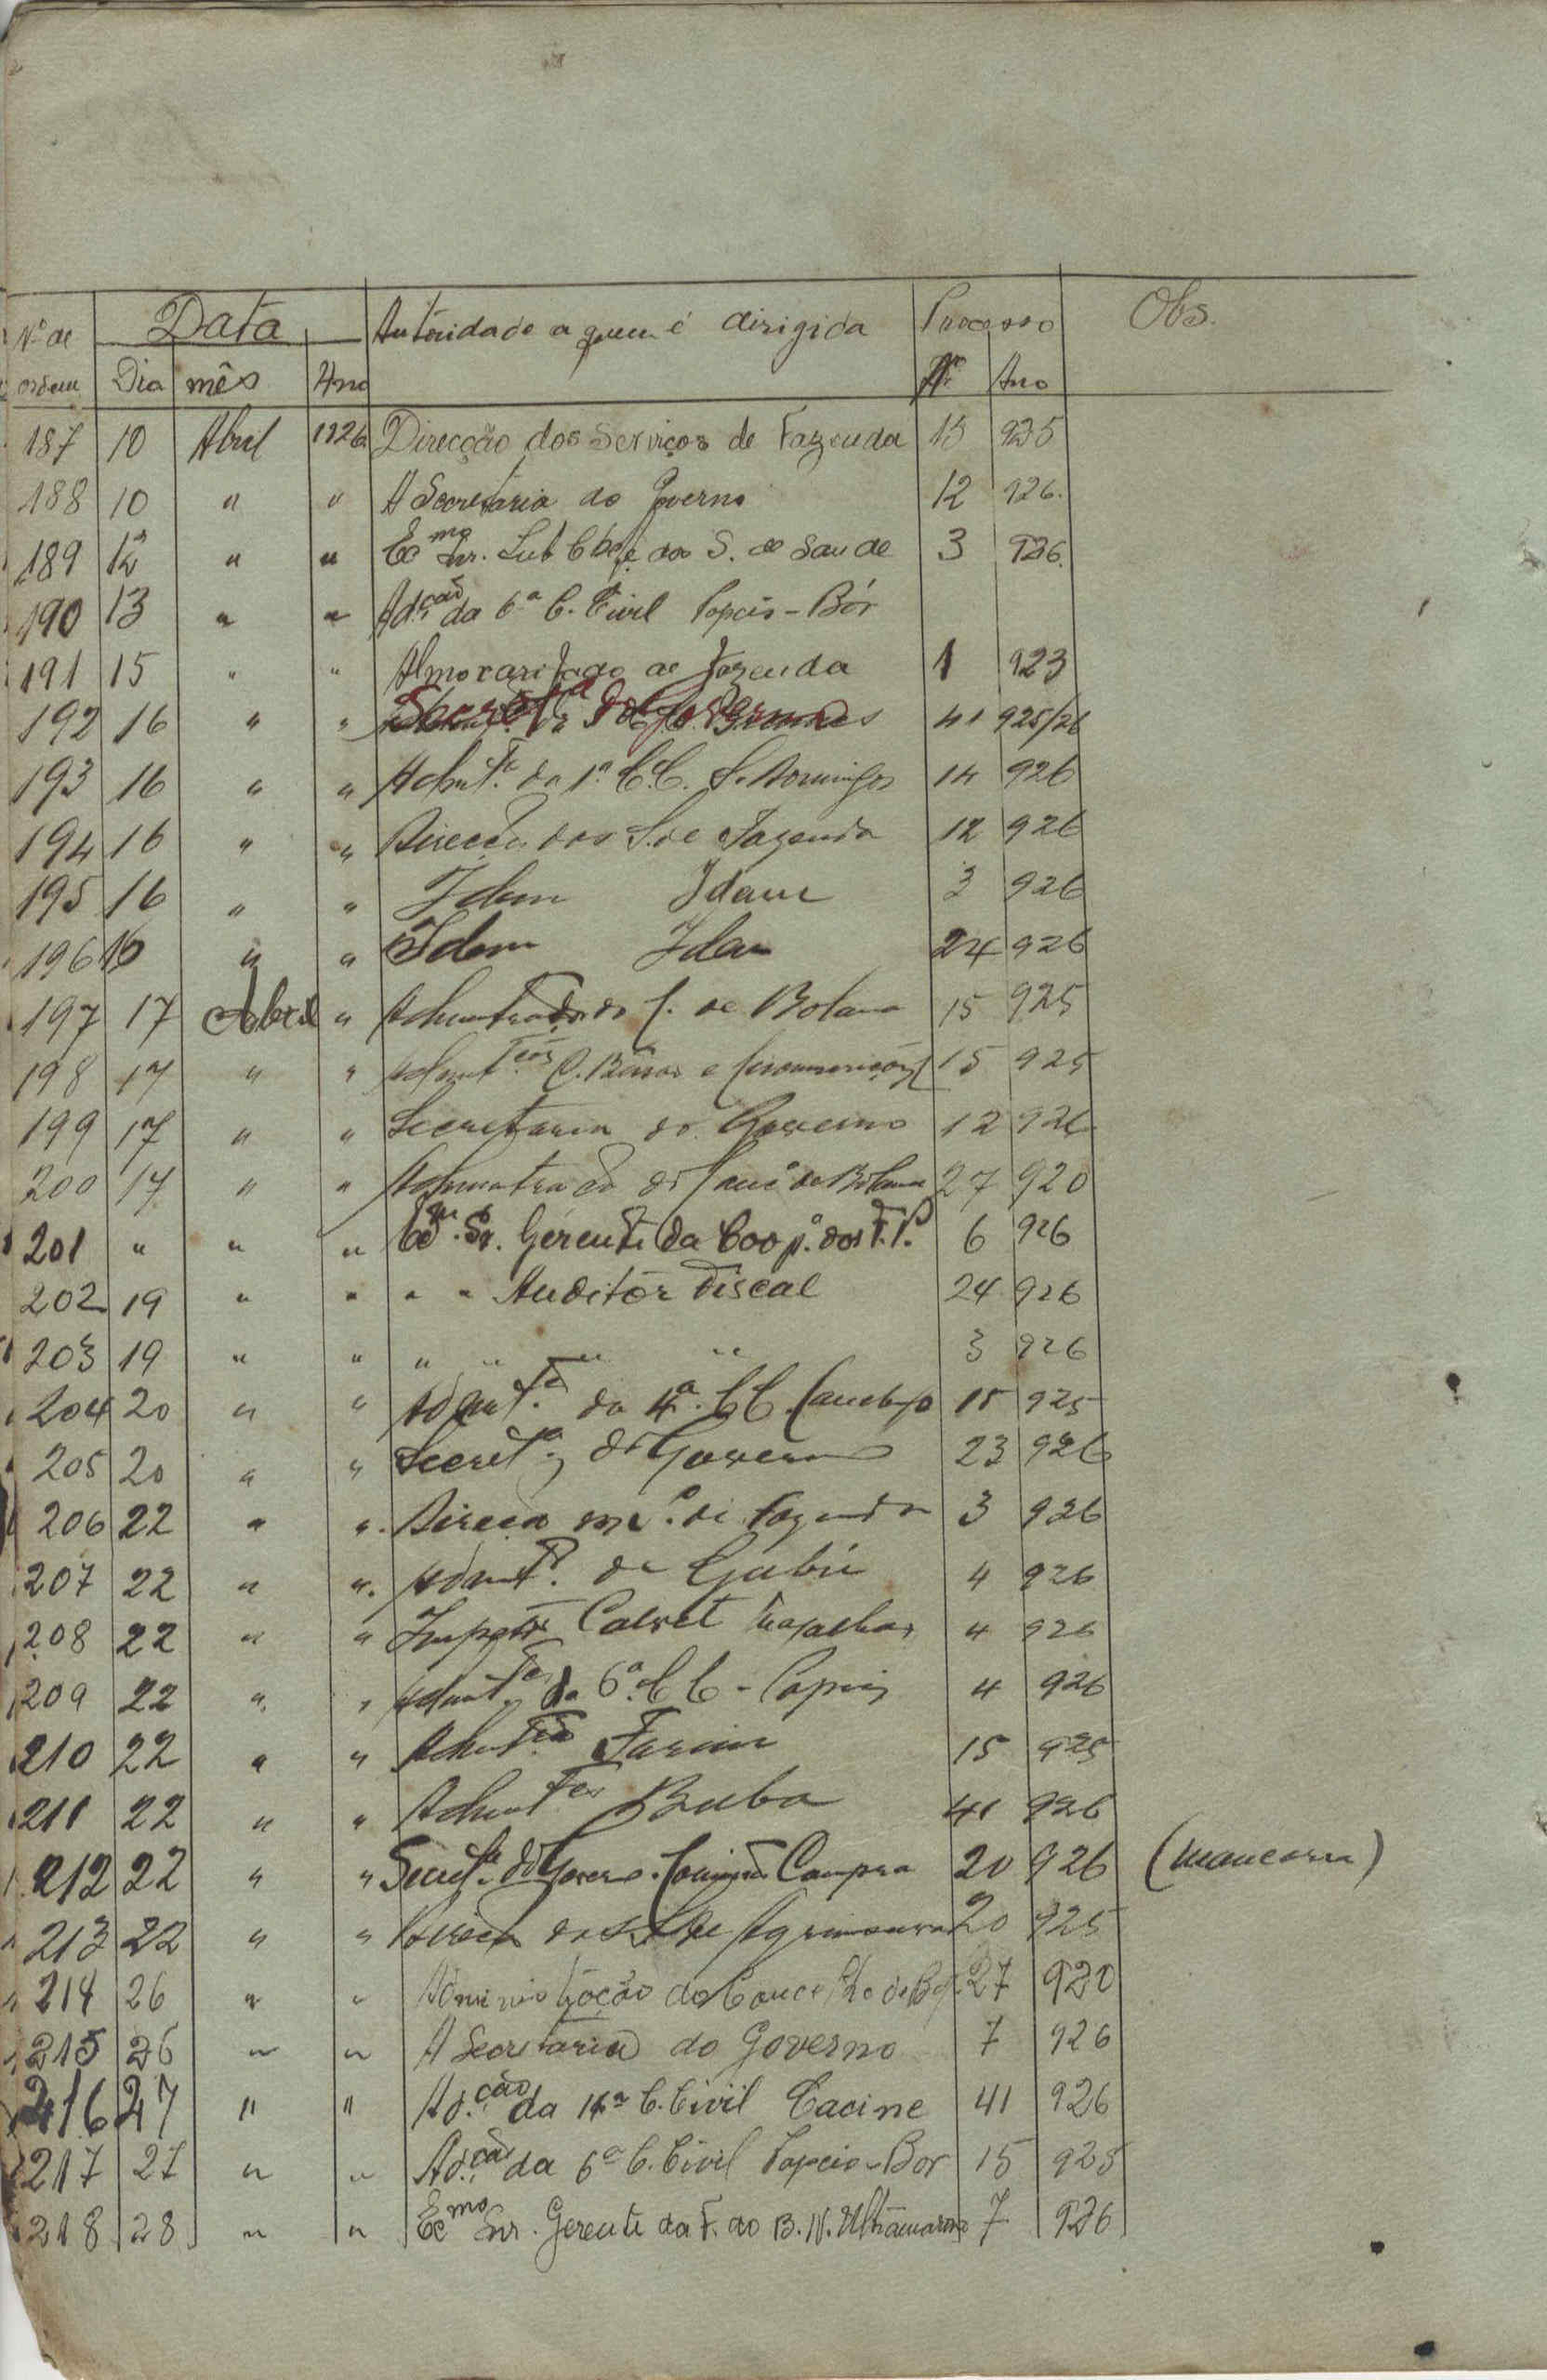 Nº de Data Autoridade a quem é dirigida Processo Obs.
ordem Dia mês Ano Nº Ano
187 10 Abril 1926 Direcção dos Serviços de Fazenda 15 925
188 10 " " A Secretaria do Governo 12 926.
189 12 " " Exmo Snr. Sub Chefe dos S. de Saude 3 926.
190 13 " " Ad.ção da 6ª C. Civil Papeis-Bór
191 15 " " Almoxarifado de Fazenda 1 923
192 16 " " Secretª do Governo 41 925/26
193 16 " " Admt.ª da 1ª C.C. S. Domingos 14 926
194 16 " " Direcção dos S. de Fazenda 12 926
195 16 " " Idem Idem 3 926
196 16 " " Idem Idem 24 926
197 17 Abril " do C. de Bolama 15 925
198 17 " " 15 925
199 17 " " Secretaria do Governo 12 926
200 17 " " de Bolama 27 920
201 " " " Exmo. Sr. Gerente da Coop.º dos F.P. 6 926
202 19 " " " " Auditor Fiscal 24 926
203 19 " " " " " " 3 926
204 20 " " Admt.ª da 4ª. C.C. 15 925
205 20 " " Secretª do Governo 23 926
206 22 " " Direcção de Fazenda 3 926
207 22 " " Admt.ª de Gabú 4 926
208 22 " " Calvet Magalhães 4 926
209 22 " " Admt.ª da 6ª C.C - Papeis 4 926
210 22 " " Admt.ção Farim 15 925
211 22 " " Admt.ção Buba 41 926
212 22 " " Secretª do Governo. Compra 20 926 (mancarra)
213 22 " " Direcção dos S. de Agrimensura 20 925
214 26 " " Administração do Concelho de 27 920
215 26 " " A Secretaria do Governo 7 926
216 27 " " Ad.ção da C. Civil Cacine 41 926
217 27 " " Ad.ção da 6ª C. Civil Papeis-Bor 15 925
218 28 " " Exmo Snr. Gerente da F. do B. N. Ultramarino 7 926